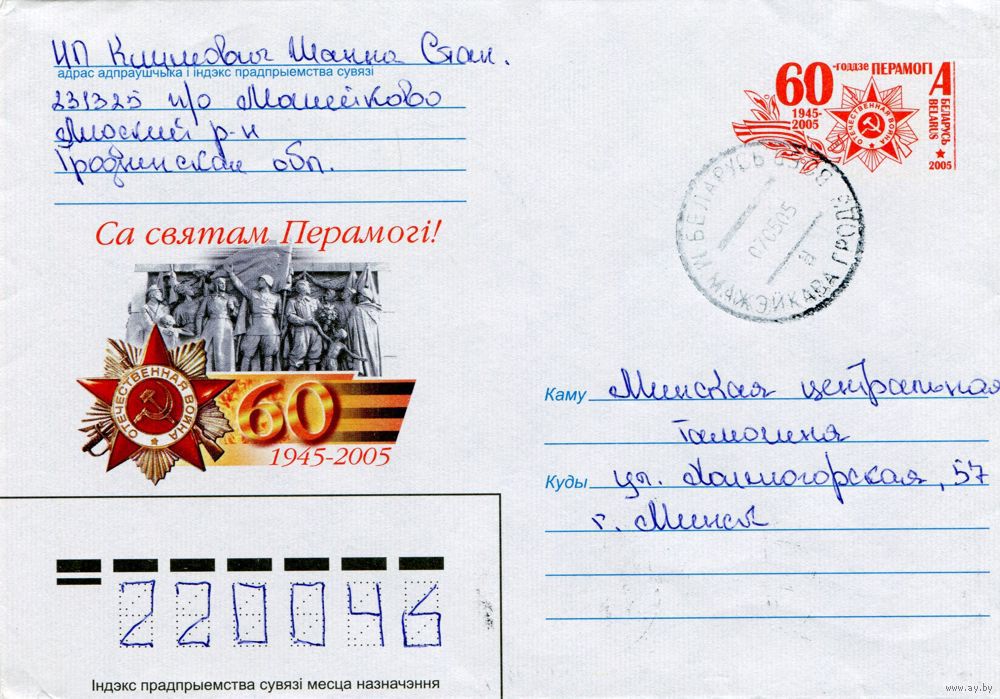 ИП Климович Жанна Стан.
адрас адпраўшчыка і індэкс прадпрыемства сувязі
231325 п/о Можейково
Лидский р-н
Гродненская обл.
60-годдзе ПЕРАМОГІ
1945-2005
ОТЕЧЕСТВЕННАЯ ВОЙНА
А
БЕЛАРУСЬ
BELARUS
2005
БЕЛАРУСЬ
070505
а
МАЖЭЙКАВА ГРОДЗ
Са святам Перамогі!
ОТЕЧЕСТВЕННАЯ ВОЙНА
60
1945-2005
Каму Минская центральная
таможня
Куды ул. Холмогорская, 57
г. Минск
220046
Індэкс прадпрыемства сувязі месца назначэння
www.ay.by